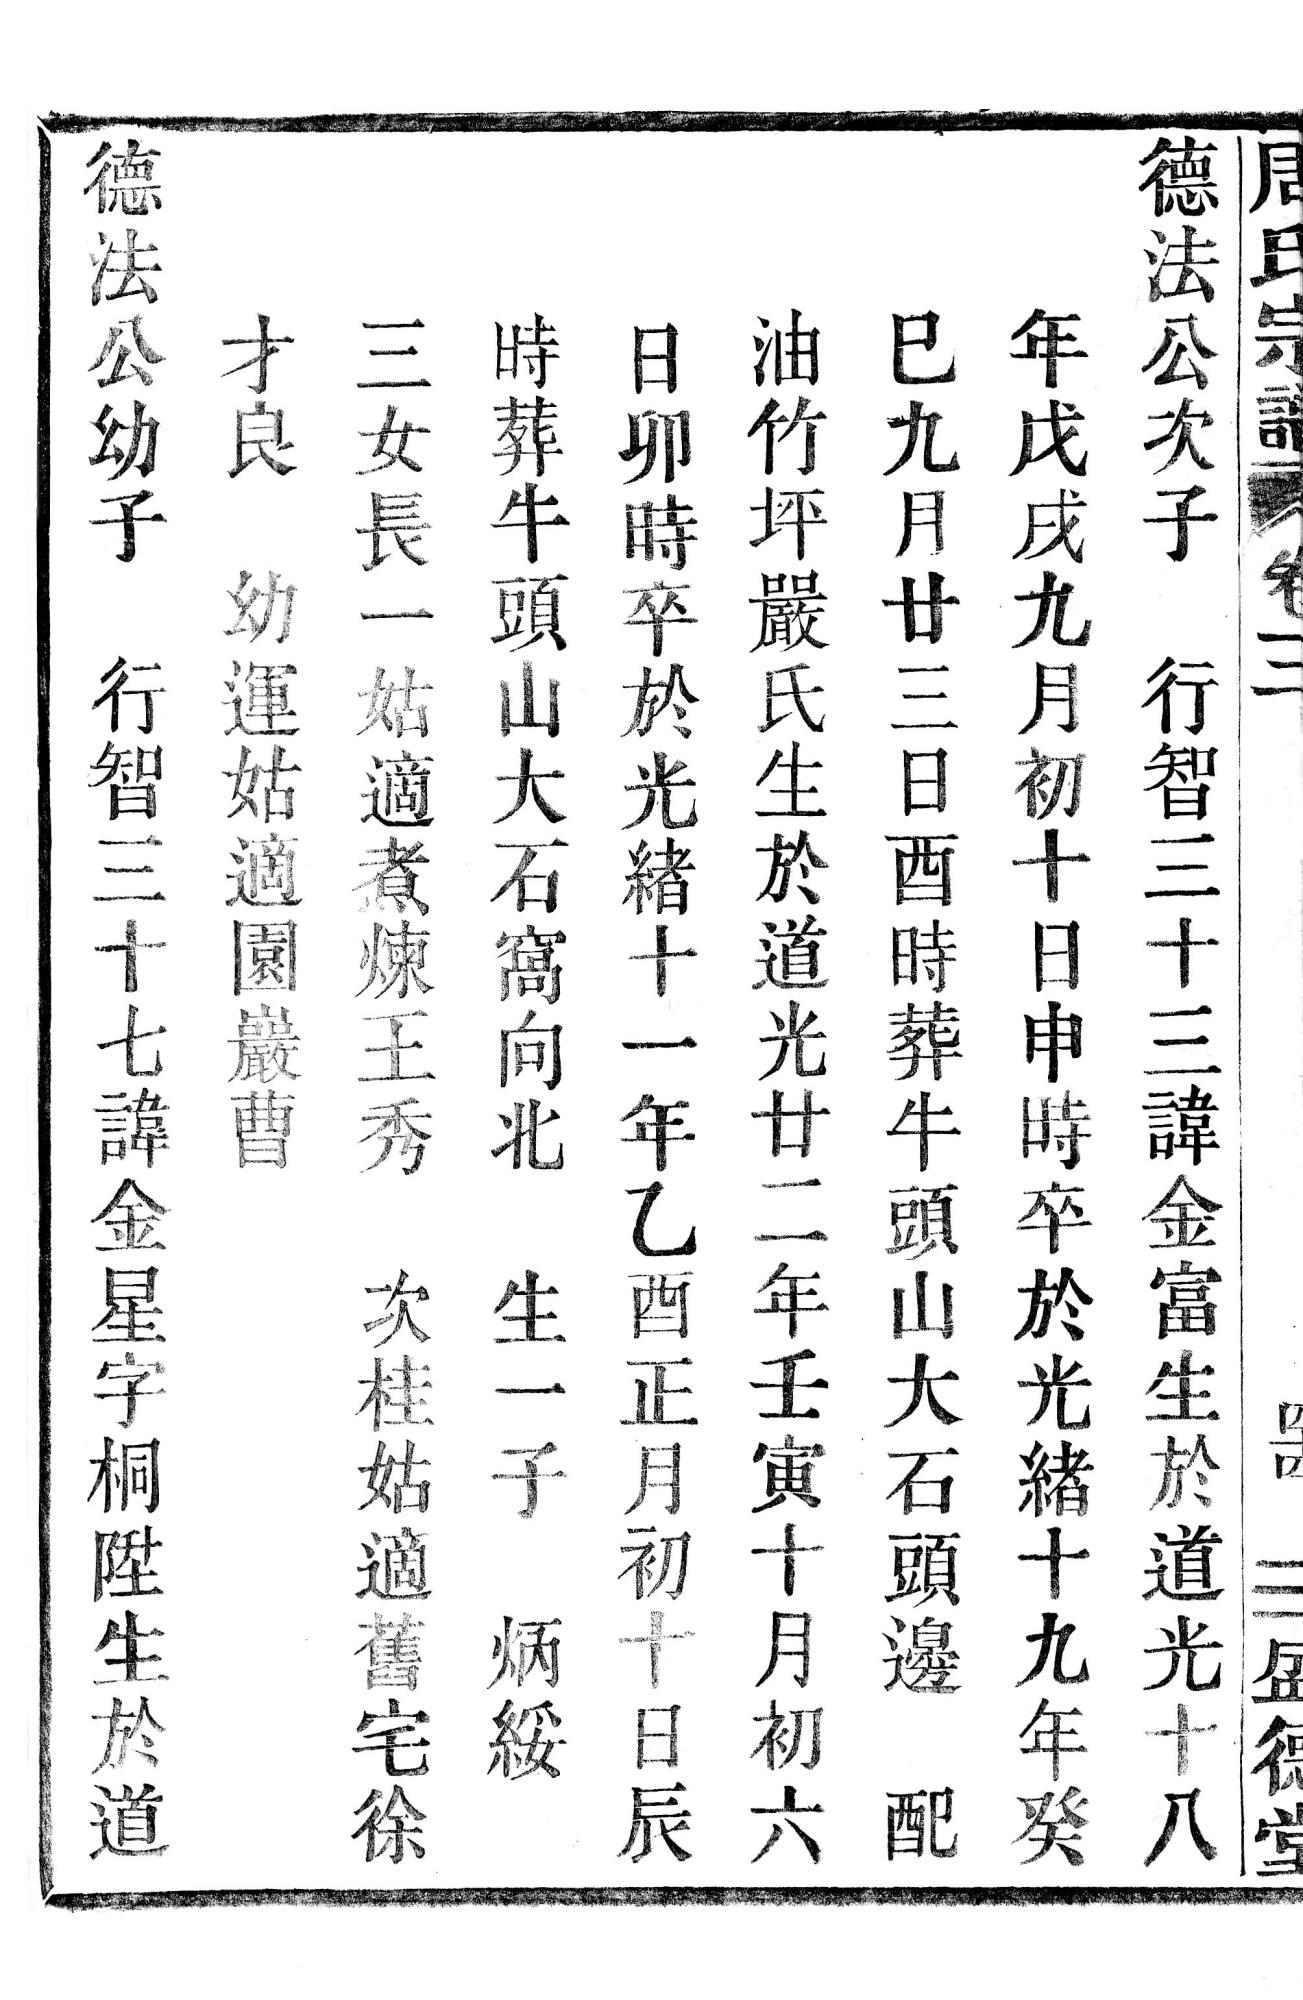 周氏宗譜 卷三 三盛德堂
德法公次子 行智三十三諱金富生於道光十八
年戊戌九月初十日申時卒於光緒十九年癸
巳九月廿三日酉時葬牛頭山大石頭邊 配
油竹坪嚴氏生於道光廿二年壬寅十月初六
日卯時卒於光緒十一年乙酉正月初十日辰
時葬牛頭山大石窩向北 生一子 炳綏
三女長一姑適煮煉王秀 次桂姑適舊宅徐
才良 幼運姑適園巖曹
德法公幼子 行智三十七諱金星字桐陞生於道